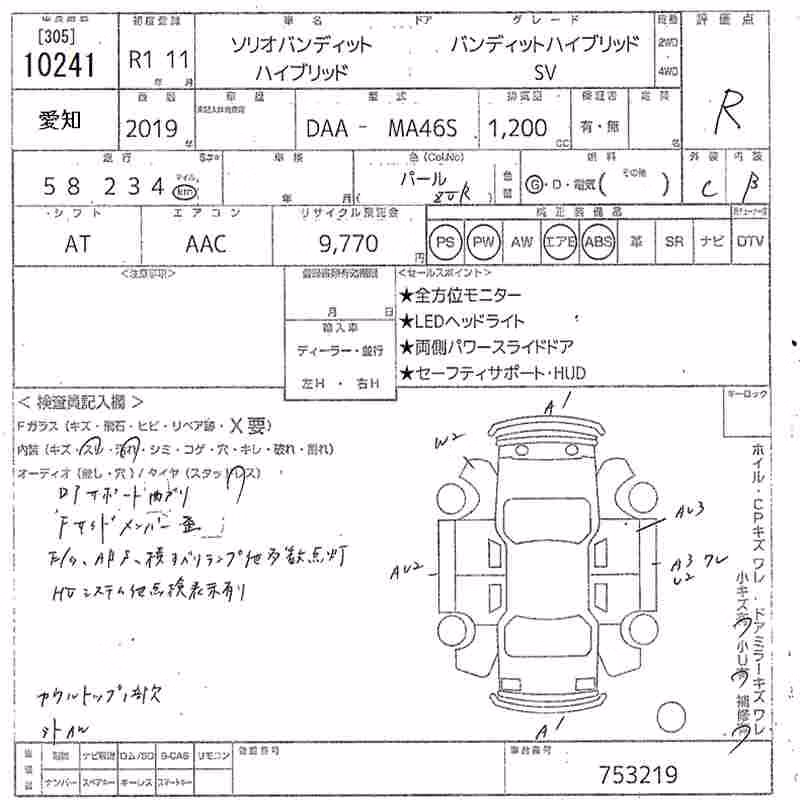 [305]
10241
初度登録
R1 11
年 月
車名 ドア グレード
ソリオバンディット
ハイブリッド
バンディットハイブリッド
SV
2WD
4WD
評価点
R
愛知
2019
年
車歴
型式
DAA - MA46S
排気量
1,200
CC
保証書
有・無
定員
名
走行
58 234
マイル
km
車検
年 月
色 (Col.No)
パール
色替
燃料
G・D・電気( その他 )
外装 内装
C B
シフト
AT
エアコン
AAC
リサイクル預託金
9,770
円
純正装備品
PS PW AW エアB ABS 革 SR ナビ DTV
<注意事項>
月 日
輸入車
ディーラー・並行
左H ・ 右H
<セールスポイント>
★全方位モニター
★LEDヘッドライト
★両側パワースライドドア
★セーフティサポート・HUD
キーロック
< 検査員記入欄 >
Fガラス (キズ・飛石・ヒビ・リペア跡・X要)
内装 (キズ・スレ・汚れ・シミ・コゲ・穴・キレ・破れ・割れ)
オーディオ (無し・穴) / タイヤ (スタッドレス)
Fサイドメンバー歪
HVシステム他点検表示有り
カウルトップ1部欠
A1
W2
AU3
AU2
A3 ワレ
U2
A1
ホイル・CPキズ ワレ ・ ドアミラーキズ ワレ
小キズ有 小U有 補修有
ナビ取説 ロム/SD B-CAS リモコン
ナンバー スペアキー キーレス スマートキー
車台番号
753219